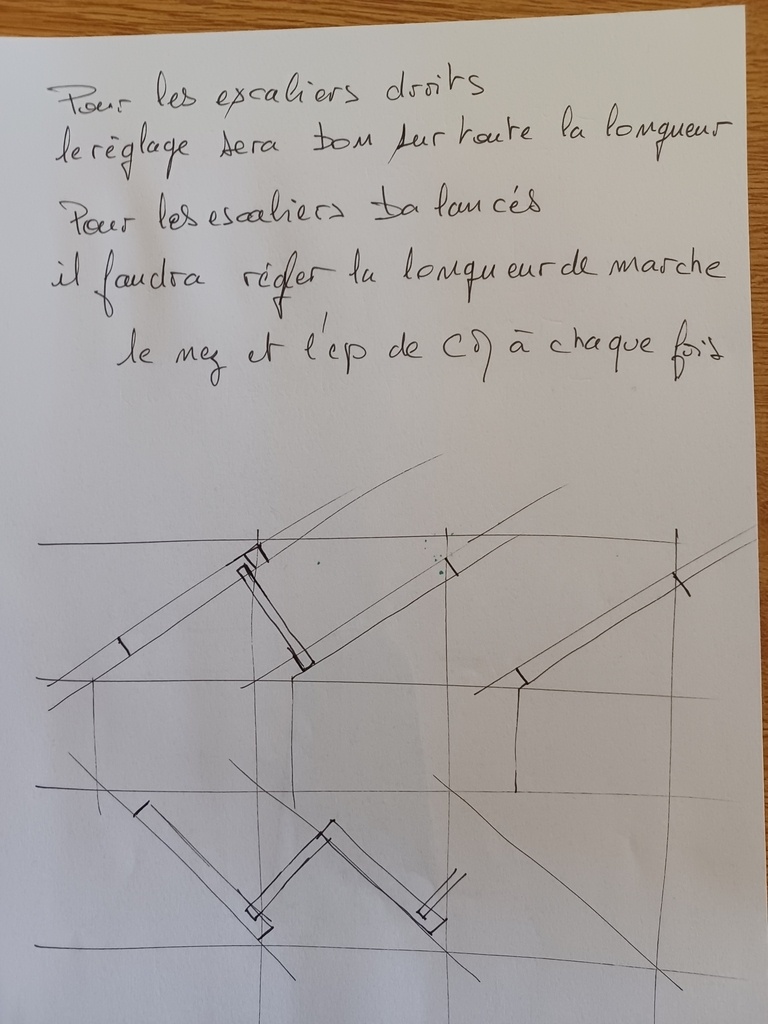 Pour les excaliers droits
le règlage sera bon sur toute la longueur
Pour les escaliers balancés
il faudra régler la longueur de marche
le nez et l'ép de à chaque fois